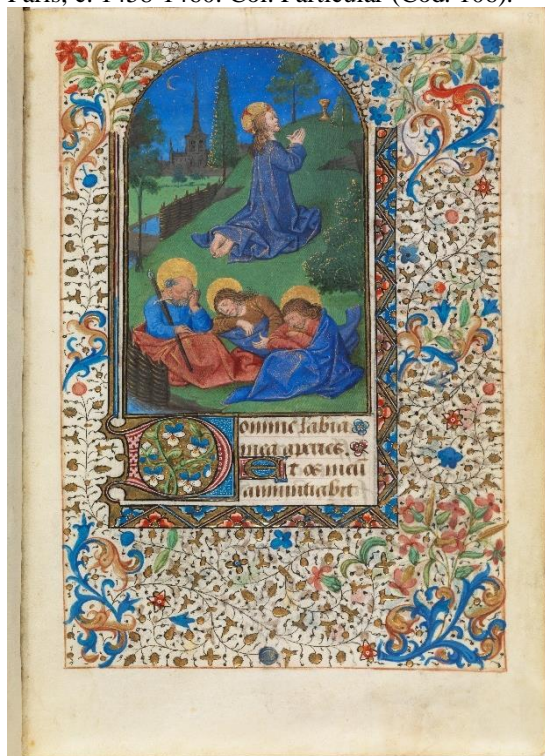 Paris, c. 1458-1460. Col. Particular (Cod. 106).
Domine labia
mea aperies.
Et os meu
annuntiabit